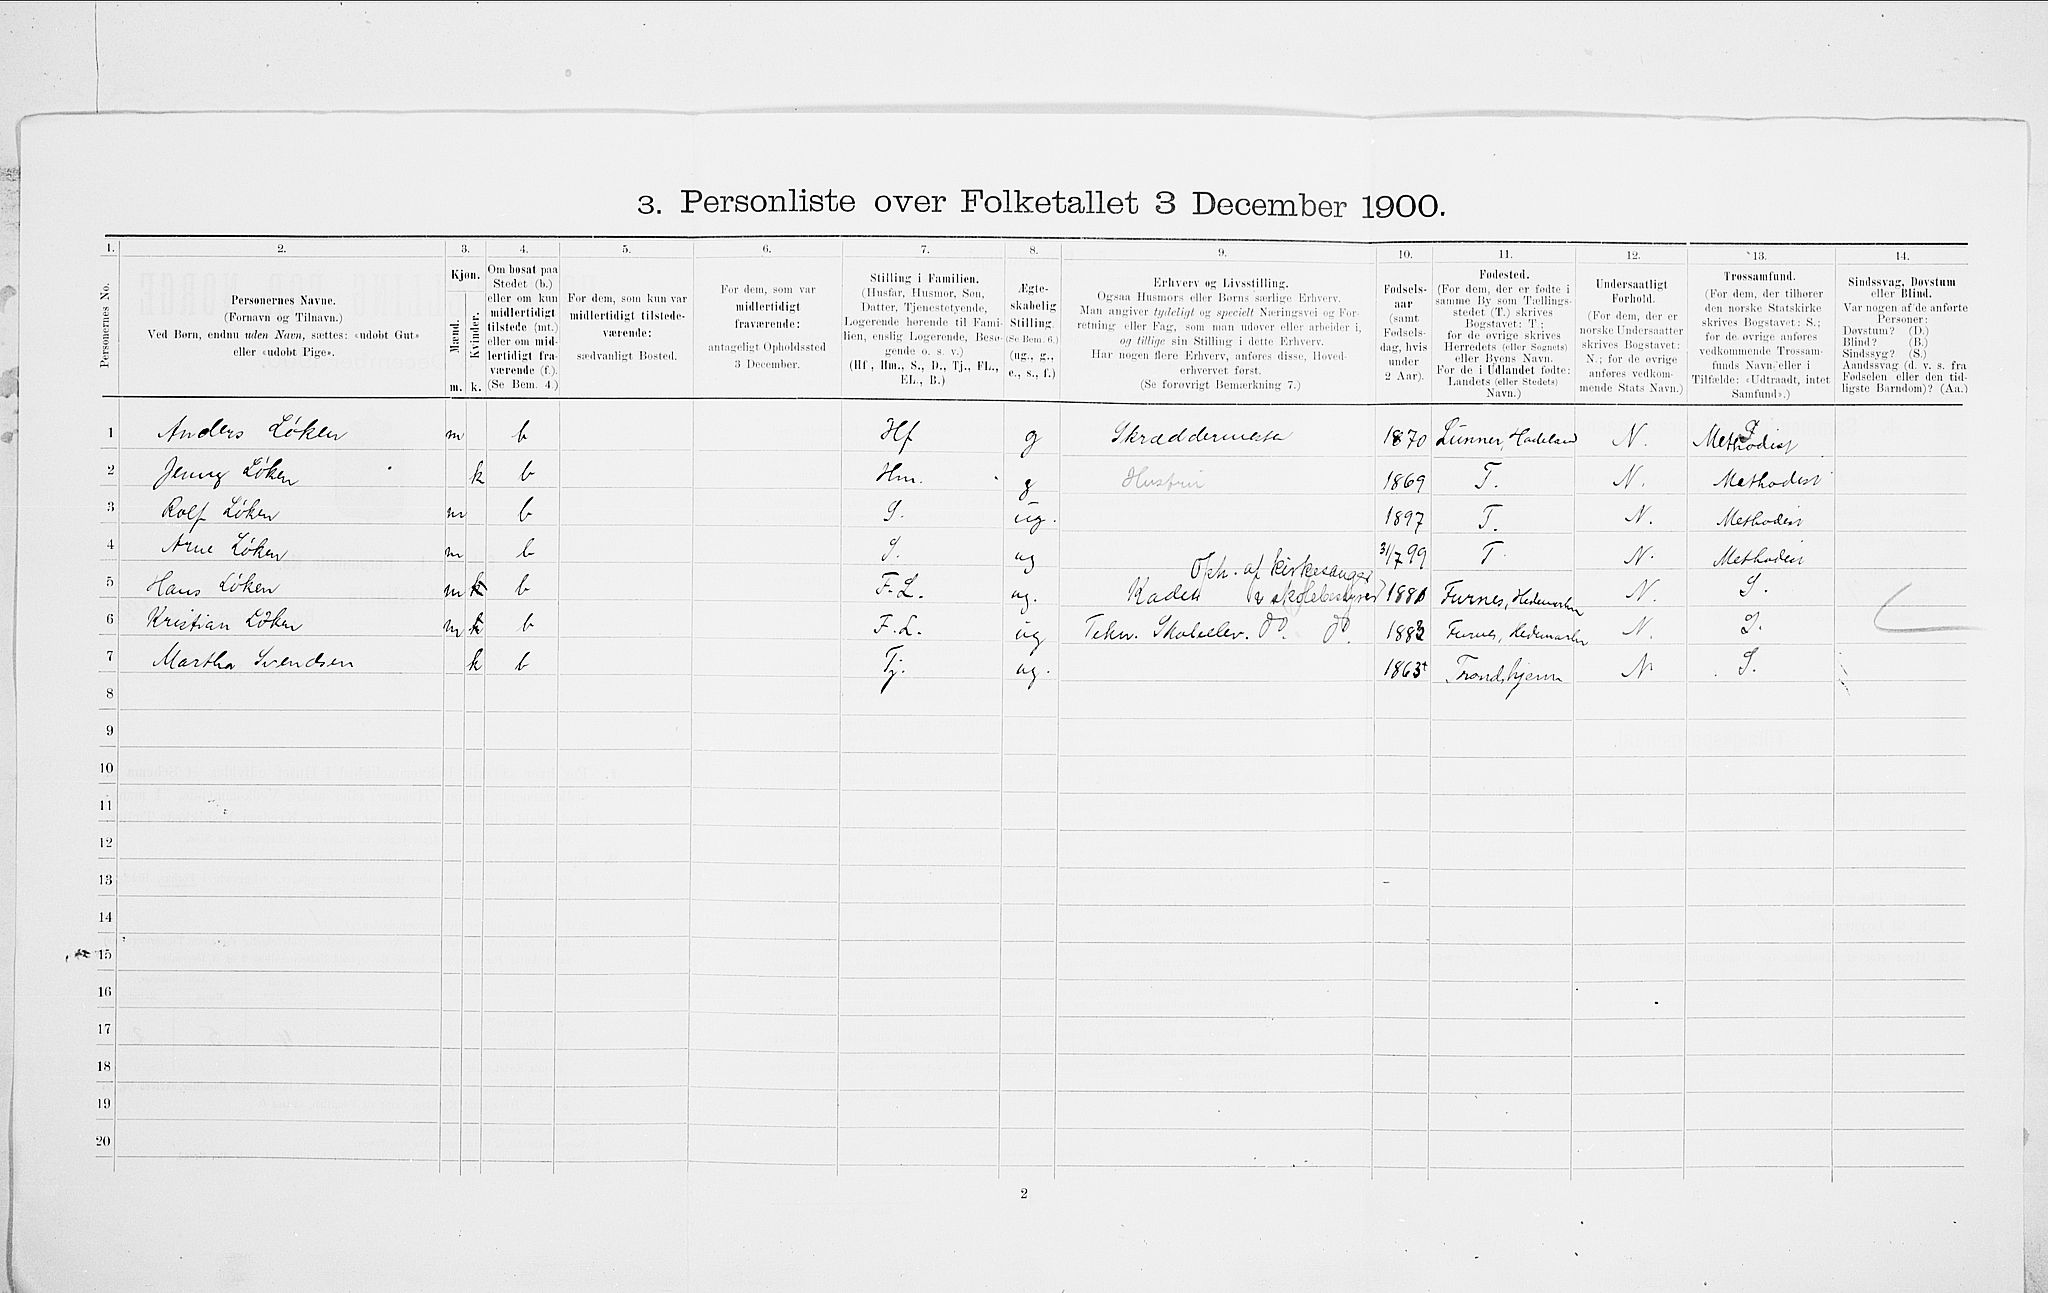 3. Personliste over Folketallet 3 December 1900.
1. 2. 3. 4. 5. 6. 7. 8. 9. 10. 11. 12. 13. 14.
Personernes No.
Personernes Navne.
(Fornavn og Tilnavn.)
Ved Børn, endnu uden Navn, sættes: «udøbt Gut»
eller «udøbt Pige».
Kjøn.
Mænd.
Kvinder.
m. k.
Om bosat paa
Stedet (b.)
eller om kun
midlertidigt
tilstede (mt.)
eller om mid-
lertidigt fra-
værende (f.).
(Se Bem. 4.)
For dem, som kun var
midlertidigt tilstede-
værende:
sædvanligt Bosted.
For dem, som var
midlertidigt
fraværende:
antageligt Opholdssted
3 December.
Stilling i Familien.
(Husfar, Husmor, Søn,
Datter, Tjenestetyende,
Logerende hørende til Fami-
lien, enslig Logerende, Besø-
gende o. s. v.)
(Hf., Hm., S., D., Tj., FL.,
EL., B.)
Ægte-
skabelig
Stilling.
(Se Bem. 6.)
(ug., g.,
e., s., f.)
Erhverv og Livsstilling.
Ogsaa Husmors eller Børns særlige Erhverv.
Man angiver tydeligt og specielt Næringsvei og For-
retning eller Fag, som man udøver eller arbeider i,
og tillige sin Stilling i dette Erhverv.
Har nogen flere Erhverv, anføres disse, Hoved-
erhvervet først.
(Se forøvrigt Bemærkning 7.)
Fødsels-
aar
(samt
Fødsels-
dag, hvis
under
2 Aar).
Fødested.
(For dem, der er fødte i
samme By som Tællings-
stedet (T.) skrives
Bogstavet: T;
for de øvrige skrives
Herredets (eller Sognets)
eller Byens Navn.
For de i Udlandet fødte:
Landets (eller Stedets)
Navn.)
Undersaatligt
Forhold.
(For dem, der er
norske Undersaatter
skrives Bogstavet:
N.; for de øvrige
anføres vedkom-
mende Stats Navn.)
Trossamfund.
(For dem, der tilhører
den norske Statskirke
skrives Bogstavet: S.;
for de øvrige anføres
vedkommende Trossam-
funds Navn, eller i
Tilfælde: «Udtraadt, intet
Samfund».)
Sindssvag, Døvstum
eller Blind.
Var nogen af de anførte
Personer:
Døvstum? (D.)
Blind? (B.)
Sindssyg? (S.)
Aandssvag (d. v. s. fra
Fødselen eller den tid-
ligste Barndom)? (Aa.)
1 Anders Løken m b Hf g Skræddermester 1870 Lunner, Hadeland N. S. Methodist
2 Jenny Løken k b Hm. g Hustru 1869 T. N. Methodist
3 Rolf Løken m b S. ug. 1897 T. N. Methodist
4 Arne Løken m b S. ug 31/7 99 T N. Methodist
5 Hans Løken m k b F.L. ug. Kadet Oph. af kirkesanger & skolebestyrer 1881 Furnes, Hedemarken N. S.
6 Kristian Løken m k b F.L. ug Tekn. Skoleelev. do. do. 1883 Furnes, Hedemarken N. S.
7 Martha Svendsen k b Tj. ug. 1863 Trondhjem N S.
8
9
10
11
12
13
14
15
16
17
18
19
20
2